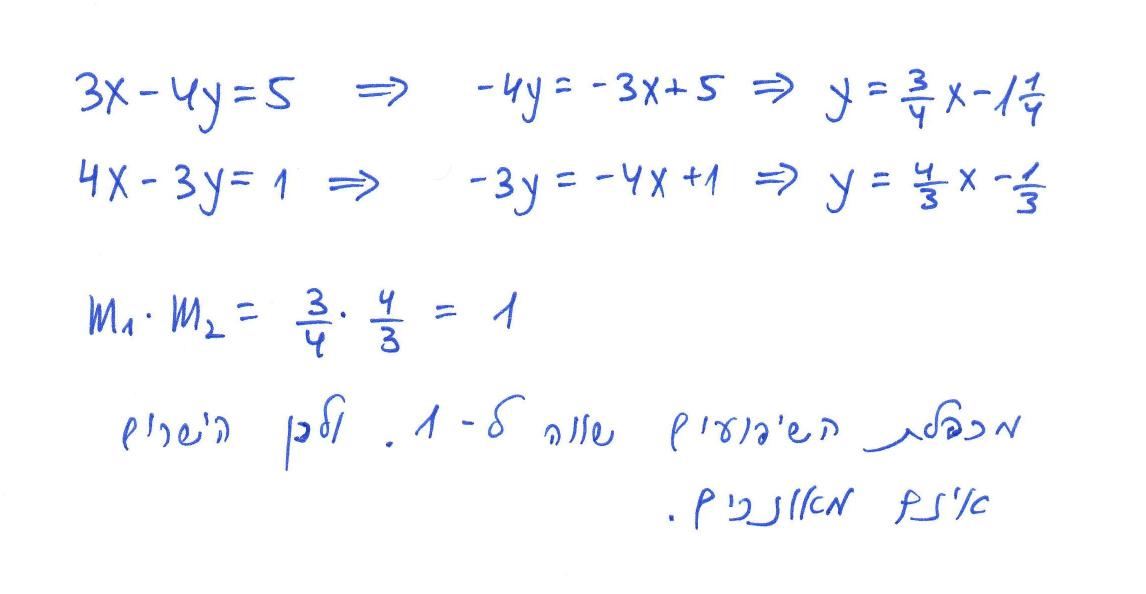 3x - 4y = 5 ⇒ -4y = -3x + 5 ⇒ y = 3/4 x - 1 1/4
4x - 3y = 1 ⇒ -3y = -4x + 1 ⇒ y = 4/3 x - 1/3
m₁ · m₂ = 3/4 · 4/3 = 1
מכפלת השיפועים שווה ל - 1 . ולכן הישרים
אינם מאונכים .